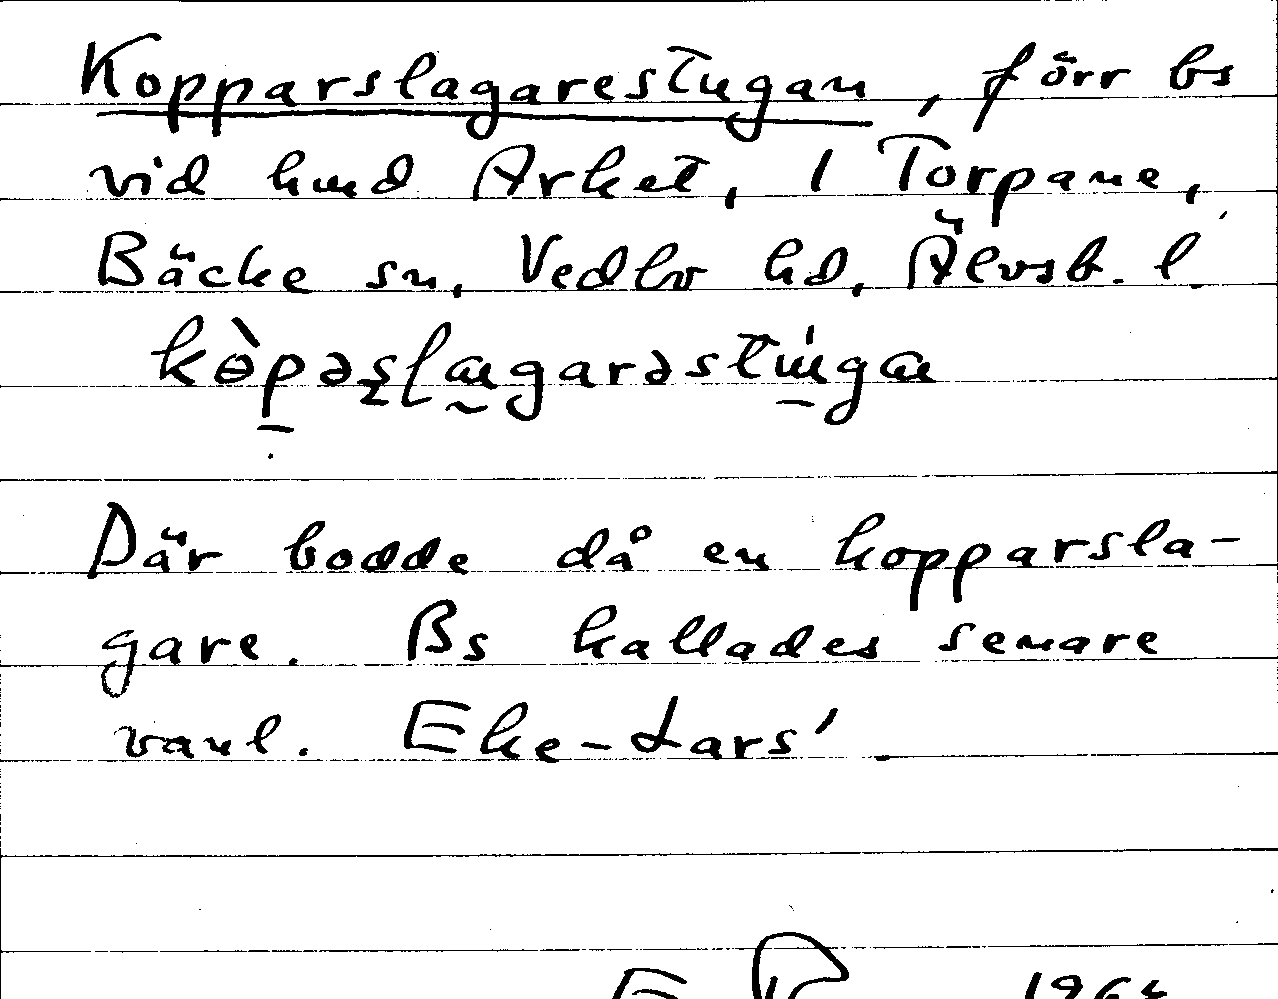 Kopparslagarestugan, förr bs
vid hmd Arket, 1 Torpane,
Bäcke sn, Vedbo hd, Älvsb. l.
Där bodde då en kopparsla-
gare. Bs kallades senare
vanl. Eke-Lars'.